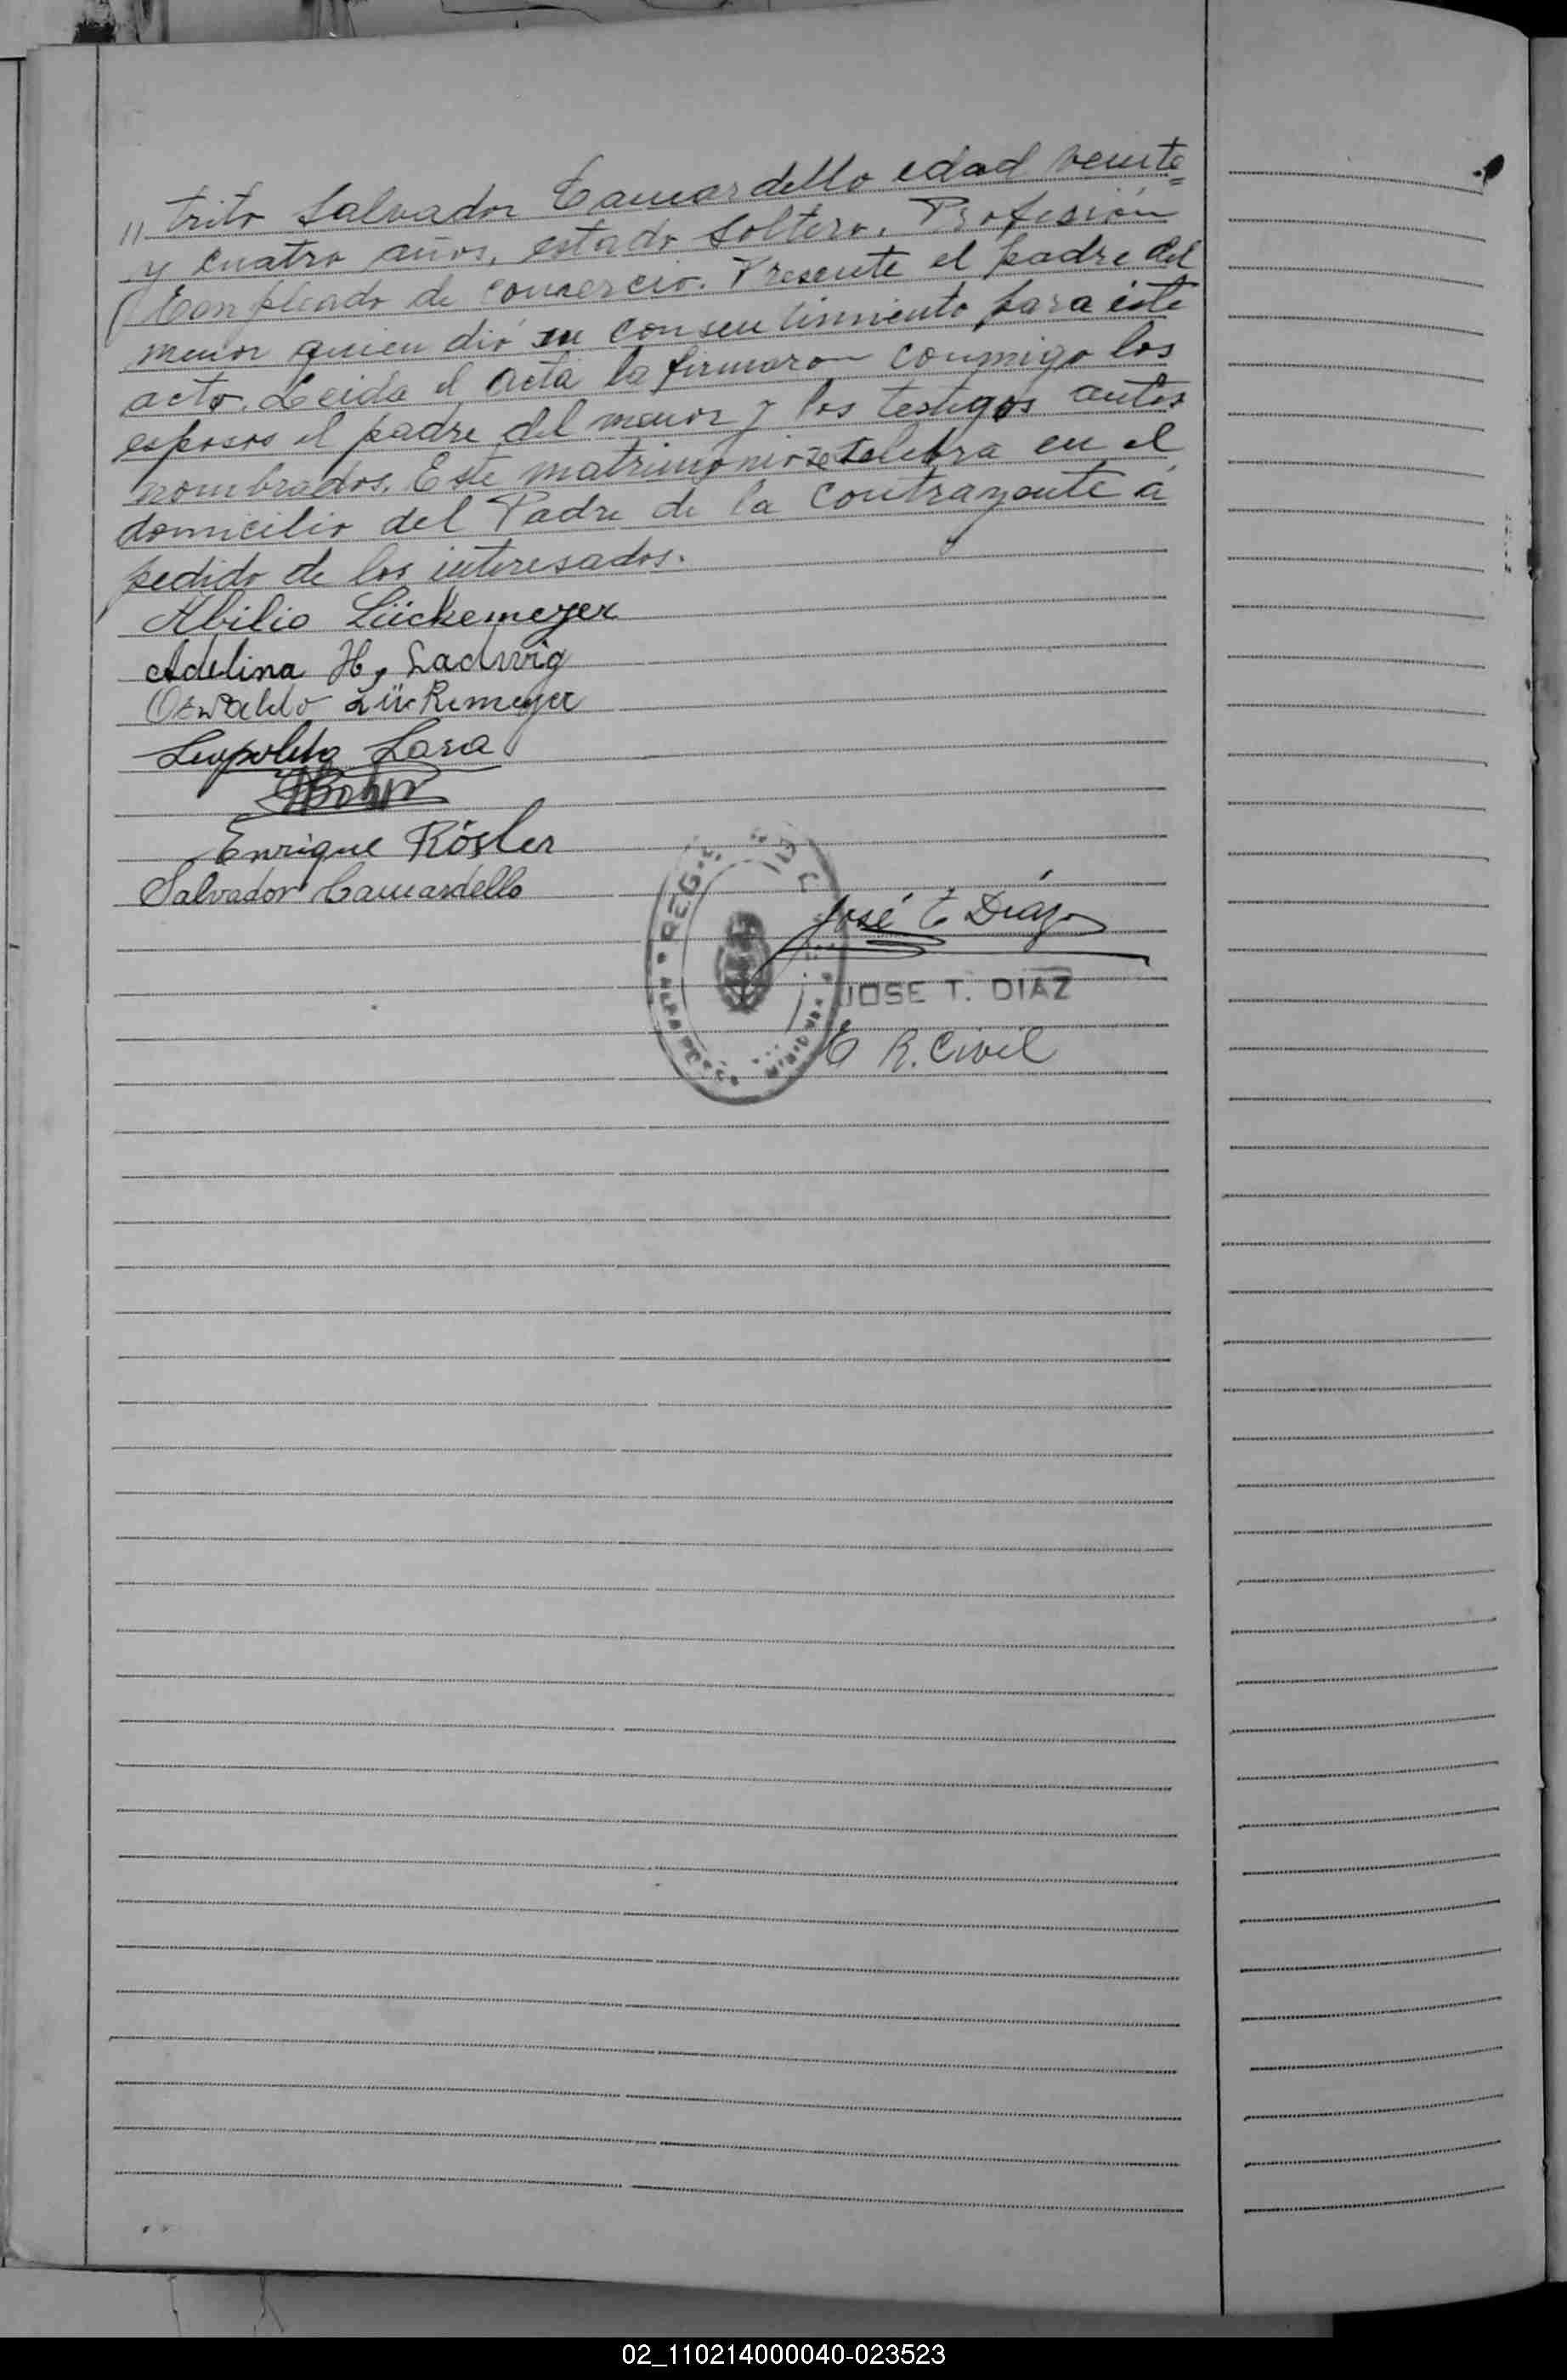 " trito Salvador Camardello edad veinte=
y cuatro años, estado soltero. Profesión
Empleado de comercio. Presente el padre del
menor quien dió su consentimiento para éste
acto. Leida el acta la firmaron conmigo los
esposos el padre del menor y los testigos antes
nombrados. Este matrimonio se celebra en el
domicilio del Padre de la contrayente á
pedido de los interesados.
Abilio Lückemeyer
Adelina H. Ladwig
Oswaldo Lückemeyer
Leopoldo Lara
Enrique Rösler
Salvador Camardello
REG
José T Diaz
JOSE T. DIAZ
E R. Civil
02_110214000040-023523